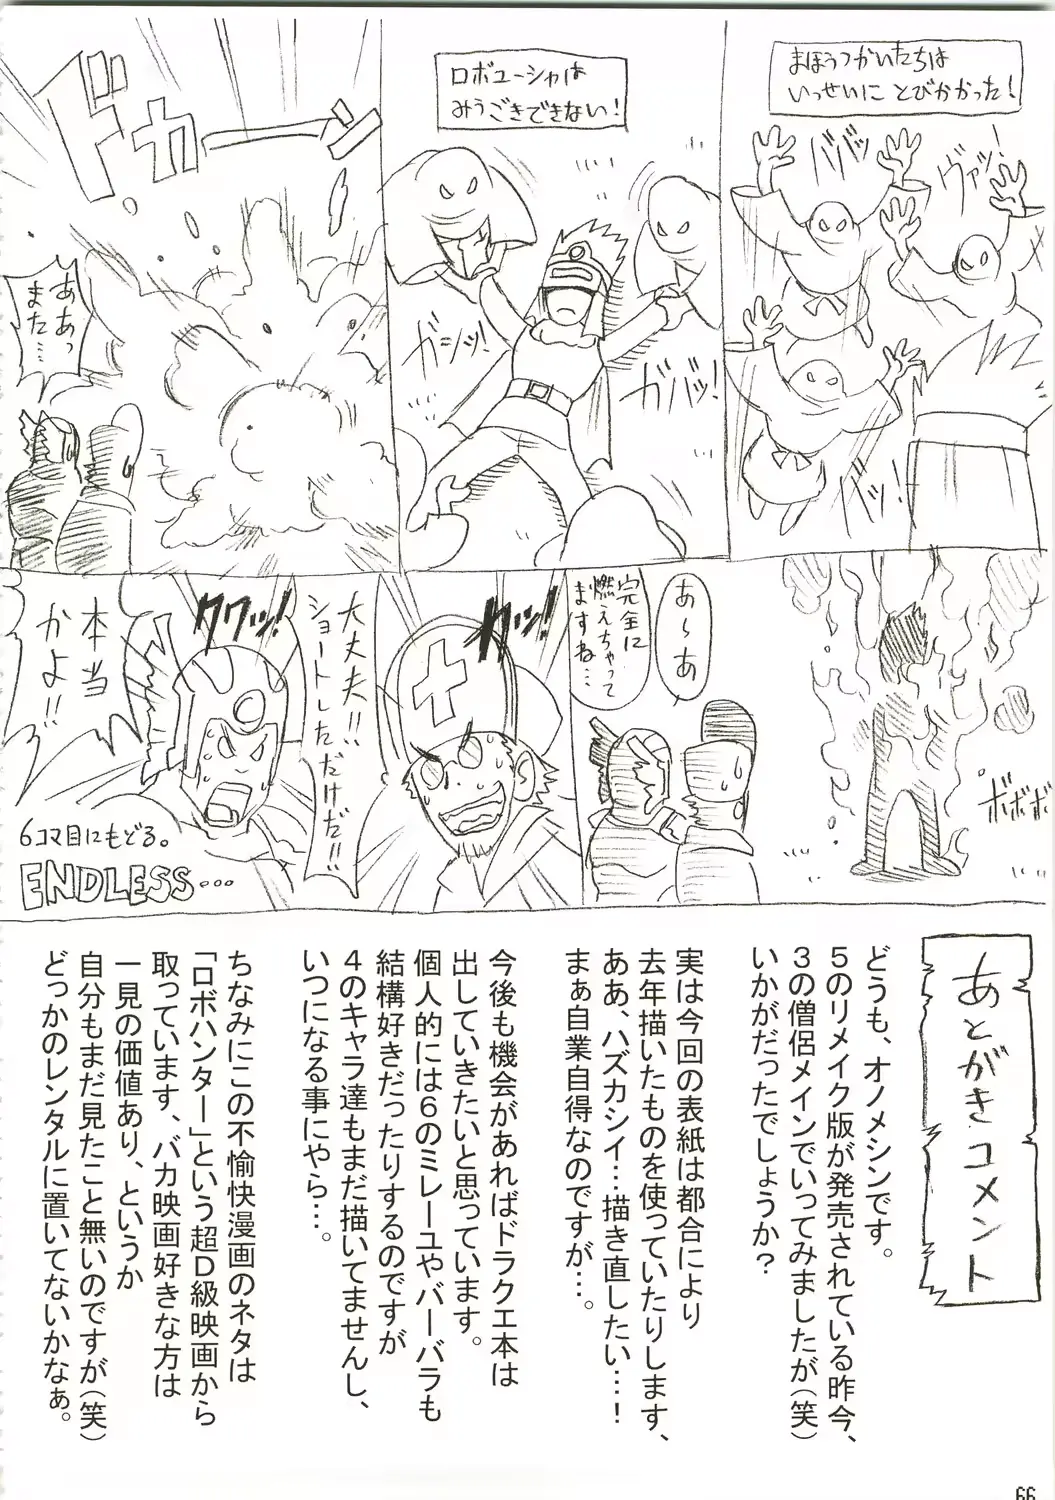 まほうつかいたちは
いっせいに とびかかった!
ババッ
ヴァッ!
バッ!
ロボユーシャは
みうごきできない!
ガシッ!
ガバッ!
ドカーン
ああっ
また…
ボボボ
あ~あ
完全に
燃えちゃって
ますね…
クワッ!
大丈夫!!
ショートしただけだ!!
クワッ!
本当
かよ!!
6コマ目にもどる。
ENDLESS…
あとがきコメント
どうも、オノメシンです。
5のリメイク版が発売されている昨今、
3の僧侶メインでいってみましたが(笑)
いかがだったでしょうか?
実は今回の表紙は都合により
去年描いたものを使っていたりします、
ああ、ハズカシイ…描き直したい…!
まぁ自業自得なのですが…。
今後も機会があればドラクエ本は
出していきたいと思っています。
個人的には6のミレーユやバーバラも
結構好きだったりするのですが
4のキャラ達もまだ描いてませんし、
いつになる事にやら…。
ちなみにこの不愉快漫画のネタは
「ロボハンター」という超D級映画から
取っています、バカ映画好きな方は
一見の価値あり、というか
自分もまだ見たこと無いのですが(笑)
どっかのレンタルに置いてないかなぁ。
66